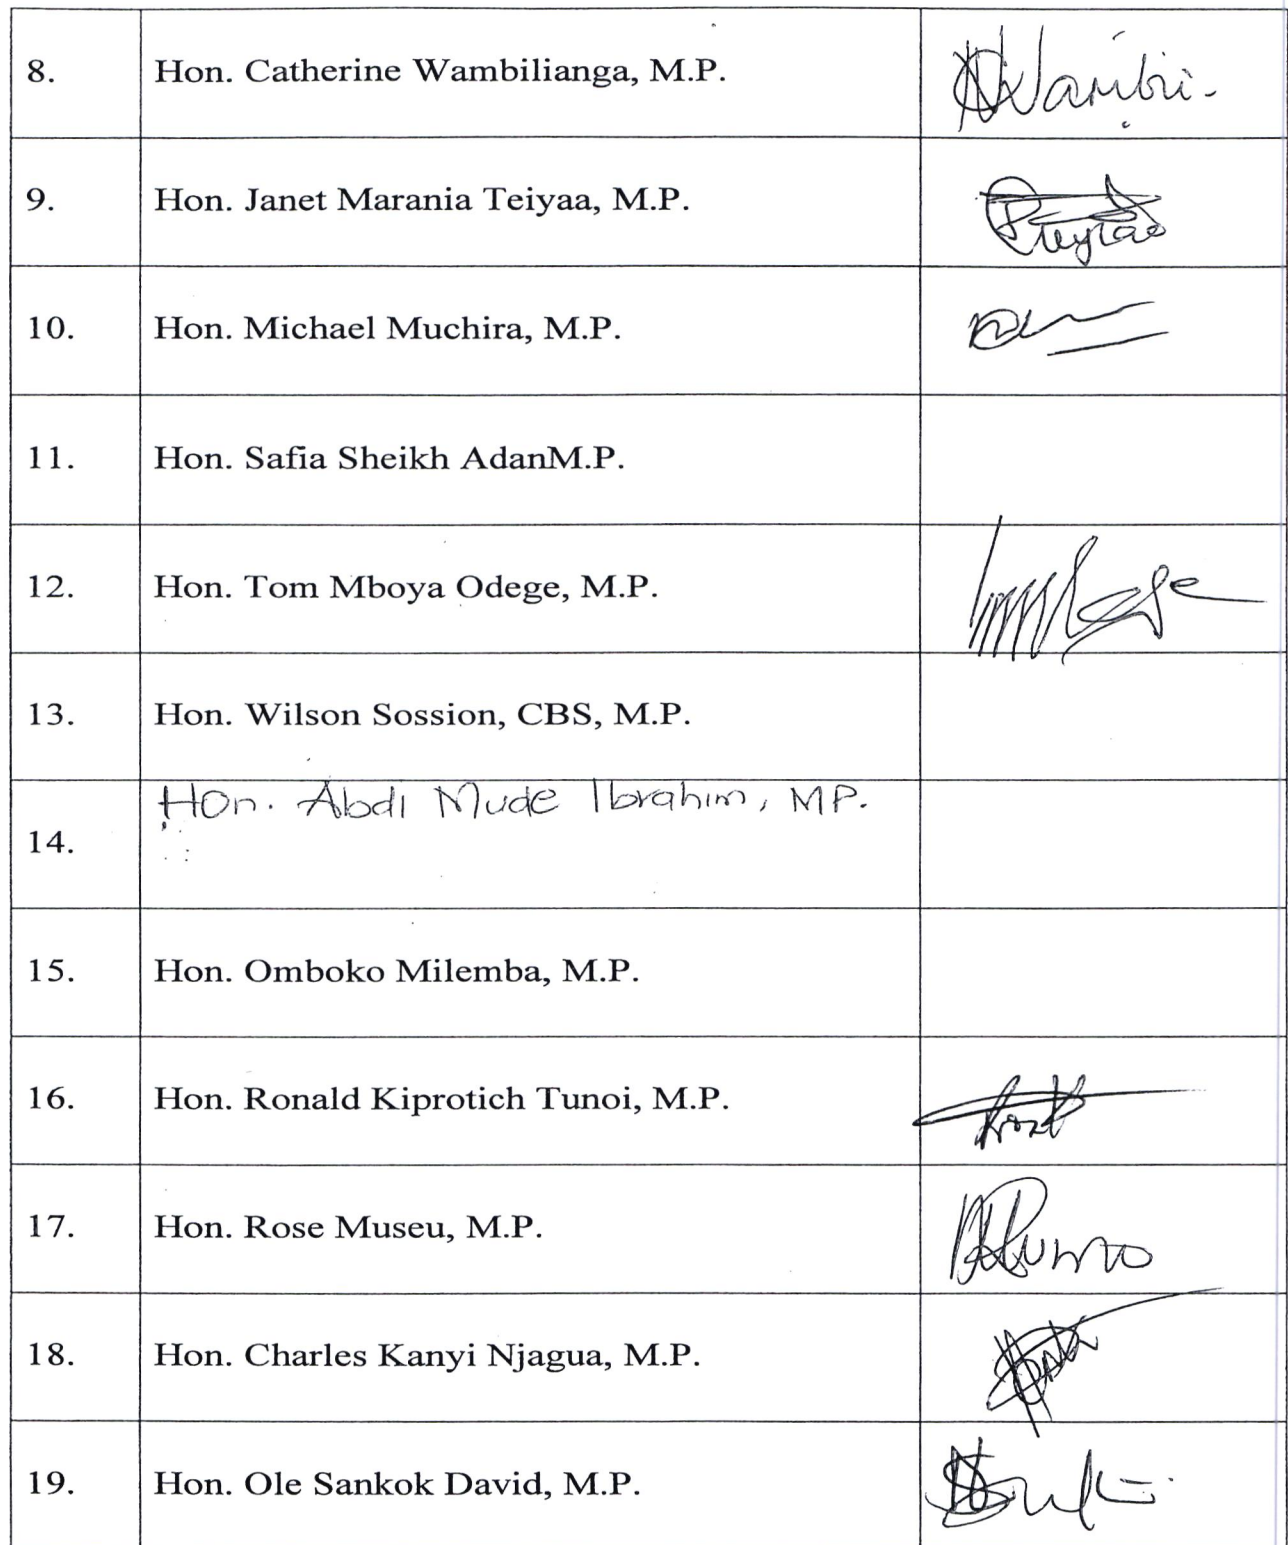 8. Hon. Catherine Wambilianga, M.P.
9. Hon. Janet Marania Teiyaa, M.P.
10. Hon. Michael Muchira, M.P.
11. Hon. Safia Sheikh AdanM.P.
12. Hon. Tom Mboya Odege, M.P.
13. Hon. Wilson Sossion, CBS, M.P.
14. Hon. Abdi Mude Ibrahim, MP.
15. Hon. Omboko Milemba, M.P.
16. Hon. Ronald Kiprotich Tunoi, M.P.
17. Hon. Rose Museu, M.P.
18. Hon. Charles Kanyi Njagua, M.P.
19. Hon. Ole Sankok David, M.P.